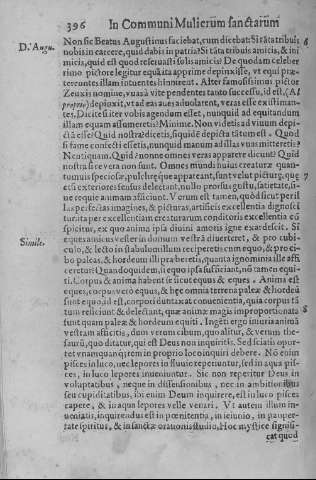 396 In Communi Mulierum sanctarum
D. Augu. Non sic Beatus Augustinus faciebat, cum dicebat: Si tāta tribuis 6
nobis in carcere, quid dabis in patria? Si tāta tribuis amicis, & ini
micis, quid est quod reseruasti solis amicis? De quodam celeber
rimo pictore legitur equū ita apprime depinxisse, vt equi præ-
tereuntes illam intuentes hinnirent. Alter famosissimus pictor
Zeuxis nomine, vuas à vite pendentes tanto successu, id est, (Al
proprio) depinxit, vt ad eas aues aduolarent, veras esse existiman-
tes. Dicite si iter vobis agendum esset, nunquid ad equitandum
illam equam assumeretis? Minime. Non videtis ad viuum depi-
ctā esse? Quid nostra? dicetis, siquidē depicta tātum est. Quod
si fame confecti essetis, nunquid manum ad illas vuas mitteretis?
Neutiquam. Quid? nonne omnes veras apparere dicunt? Quid
nostra si ce vera non sunt. Omnes mundi huius creaturæ quan-
tumuis speciosæ, pulchręque appareant, sunt velut picturę, quę 7
etsi exteriores sensus delectant, nullo prorsus gustu, satietate, si-
ue requie animam afficiunt. Verum est tamen, quòd sicut per il
las perfectas imagines, & picturas, artificis excellentia dignosci
tur: ita per excellentiam creaturarum conditoris excellentia cō
spicitur, ex quo anima ipsa diuini amoris igne exardescit. Si
Simile. eques amicus vester in domum vestrā diuerteret, & pro cubi-
culo, & lecto in stabulum illum reciperetis cum equo, & pro ci-
bo paleas, & hordeum illi præberetis, quanta ignominia ille affi
ceretur? Quandoquidem, ij equo ipsa sufficiant, nō tamen equi-
ti. Corpus & anima habent se sicut equus & eques. Anima est
eques, corpus verò equus, & hęc omnia terrena paleæ & hordeū
sunt equo, id est, corpori dun taxat conuenientia, quia corpus tā
tum reficiunt & delectant, quæ animæ magis improportionata 8
sunt quàm paleæ & hordeum equiti. Ingēti ergo iniuria animā
vestram afficitis, dum verum cibum, quo alitur, & verum the-
saurū, quo ditatur, qui est Deus non inquiritis. Sed scitis opor-
tet vnamquanq; rem in proprio loco inquiri debere. Nō enim
pisces in luco, nec lepores in fluuio reperiuntur, sed in aqua pis-
ces, in luco lepores inueniuntur. Sic non reperitur Deus in
voluptatibus, neque in dissensionibus, nec in ambitionibus
seu cupiditatibus, ibi enim Deum inquirere, est in luco pisces
capere, & in aqua lepores velle venari. Vt autem illum in-
ueniatis, inquirendus est in pœnitentia, in ieiunio, in pauper-
tate spiritus, & in sancta orationis studio. Hoc mystice signifi-
cat quod